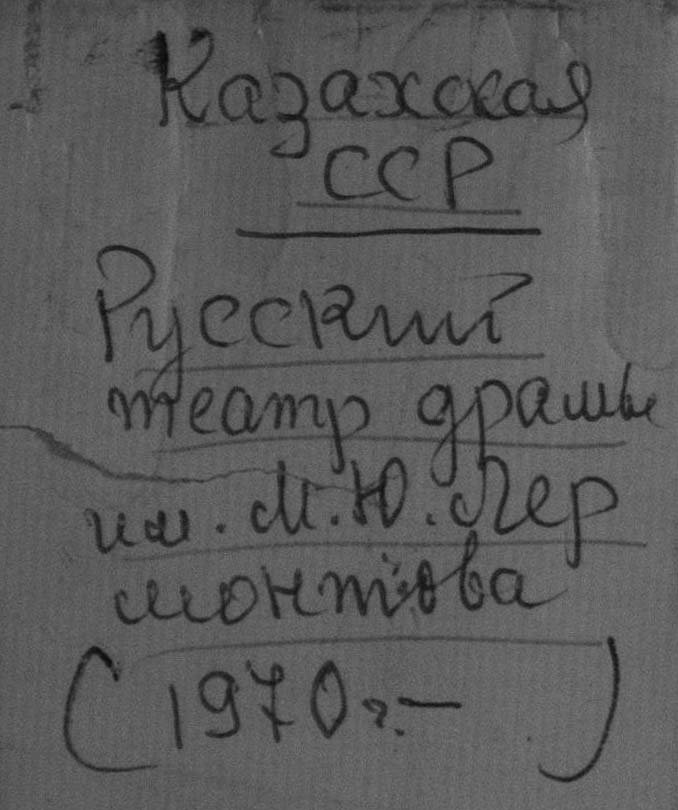 Казахская
ССР
Русский
театр драмы
им. М.Ю. Лер
монтова
(1970г.– )